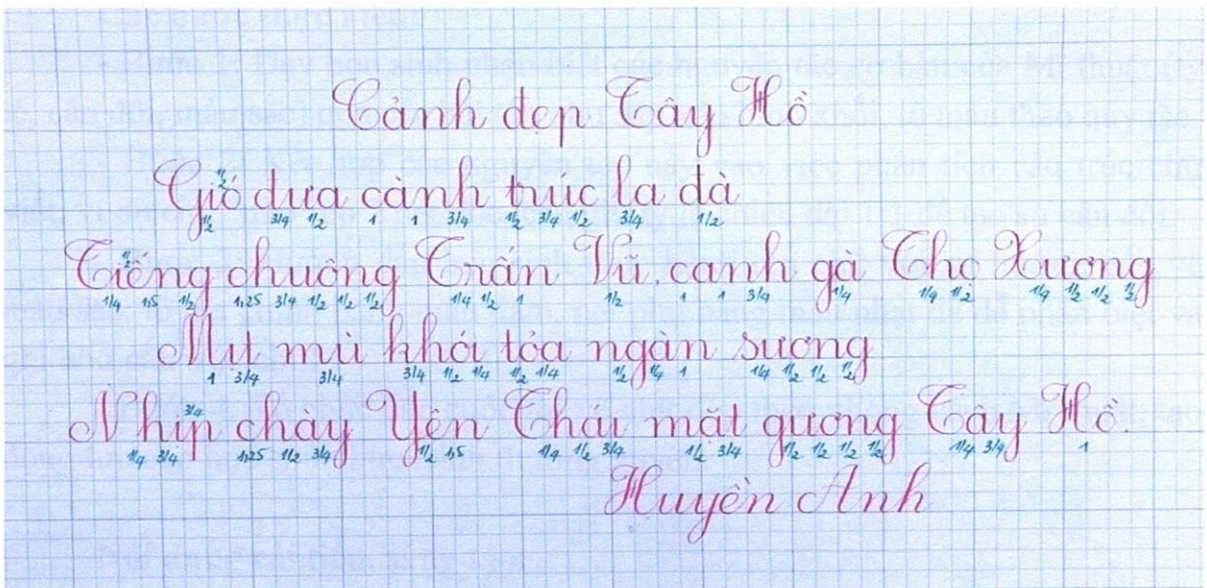 Cảnh đẹp Tây Hồ
1/2
Gió đưa cành trúc la đà
1/2 3/4 1/2 1 1 3/4 1/2 3/4 1/2 3/4 1/2
1/2
Tiếng chuông Trấn Vũ, canh gà Thọ Xương
1/4 1,5 1/2 1,25 3/4 1/2 1/2 1/2 1/4 1/2 1 1/2 1 1 3/4 1/4 1/4 1/2 1/4 1/2 1/2 1/2
Mịt mù khói tỏa ngàn sương
1 3/4 3/4 3/4 1/2 1/4 1/2 1/4 1/2 1/4 1 1/4 1/2 1/2 1/2
3/4
Nhịp chày Yên Thái mặt gương Tây Hồ.
1/4 3/4 1,25 1/2 3/4 1/2 1,5 1/4 1/2 3/4 1/2 3/4 1/2 1/2 1/2 1/2 1/4 3/4 1
Huyền Anh